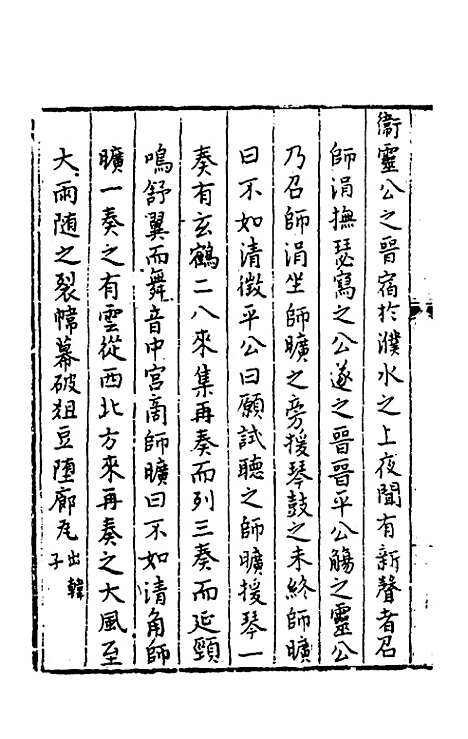 衞靈公之晉宿於濮水之上夜聞有新聲者召
師涓撫瑟寫之公遂之晉晉平公觴之靈公
乃召師涓坐師曠之旁援琴鼓之未終師曠
曰不如清徵平公曰願試聽之師曠援琴一
奏有玄鶴二八來集再奏而列三奏而延頸
鳴舒翼而舞音中宮商師曠曰不如清角師
曠一奏之有雲從西北方來再奏之大風至
大雨随之裂幃幕破俎豆堕廊瓦出韓子